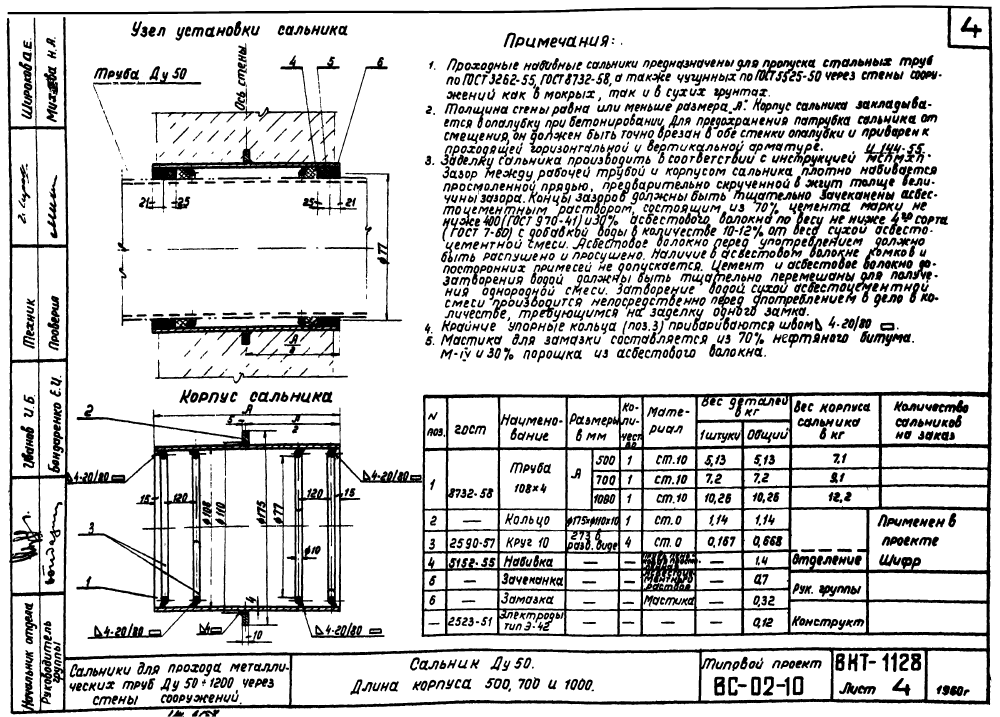 4
Узел установки сальника
Труба Ду 50
Ось стены
4 5 6
21 25
25 21
ф77
А
2
Корпус сальника
А
5
А
2
2
4-20/80
4-20/80
15 120
ф108
ф110
ф175
ф77
120 15
ф10
3
1
4-20/80
4
4
10
4-20/80
Примечания:
1. Проходные набивные сальники предназначены для пропуска стальных труб
по ГОСТ 3262-55, ГОСТ 8732-58, а также чугунных по ГОСТ 5525-50 через стены соору-
жений как в мокрых, так и в сухих грунтах.
2. Толщина стены равна или меньше размера „А". Корпус сальника закладыва-
ется в опалубку при бетонировании. Для предохранения патрубка сальника от
смещения, он должен быть точно врезан в обе стенки опалубки и приварен к
проходящей горизонтальной и вертикальной арматуре.
3. Заделку сальника производить в соответствии с инструкцией И 144-55 МСПМХП.
Зазор между рабочей трубой и корпусом сальника плотно набивается
просмоленной прядью, предварительно скрученной в жгут толще вели-
чины зазора. Концы зазоров должны быть тщательно зачеканены асбес-
тоцементным раствором, состоящим из 70% цемента марки не
ниже 400 (ГОСТ 970-41) и 30% асбестового волокна по весу не ниже 4го сорта
(ГОСТ 7-60) с добавкой воды в количестве 10-12% от веса сухой асбесто-
цементной смеси. Асбестовое волокно перед употреблением должно
быть распушено и просушено. Наличие в асбестовом волокне комков и
посторонних примесей не допускается. Цемент и асбестовое волокно до
затворения водой должны быть тщательно перемешаны для получе-
ния однородной смеси. Затворение водой сухой асбестоцементной
смеси производится непосредственно перед употреблением в дело в ко-
личестве, требующимся на заделку одного замка.
4. Крайние упорные кольца (поз.3) привариваются швом 4-20/80.
5. Мастика для замазки составляется из 70% нефтяного битума.
М-IV и 30% порошка из асбестового волокна.
N поз. ГОСТ Наимено-вание Размеры в мм Ко-ли-чест-во Мате-риал Вес деталей в кг 1 штуки Общий Вес корпуса сальника в кг Количество сальников на заказ
1 8732-58 Труба 108×4 А 500 1 ст.10 5,13 5,13 7,1
700 1 ст.10 7,2 7,2 9,1
1000 1 ст.10 10,26 10,26 12,2
2 — Кольцо ф175×ф110×10 1 ст.0 1,14 1,14
3 2590-57 Круг 10 273 в разв. виде 4 ст.0 0,167 0,668
4 5152-55 Набивка — — — 1,4
6 — Зачеканка — — — 0,7
6 — Замазка — — Мастика — 0,32
— 2523-51 Электроды тип Э-42 — — — — 0,12
Применен в
проекте
Шифр
Отделение
Рук. группы
Конструкт
Сальники для прохода металли-
ческих труб Ду 50÷1200 через
стены сооружений.
Сальник Ду 50.
Длина корпуса 500, 700 и 1000.
Типовой проект
ВС-02-10
ВНТ-1128
Лист 4
1960г
Широков А.Е.
Техник
Проверил
Иванов И.Б.
Бондаренко Е.И.
Начальник отдела
Руководитель группы